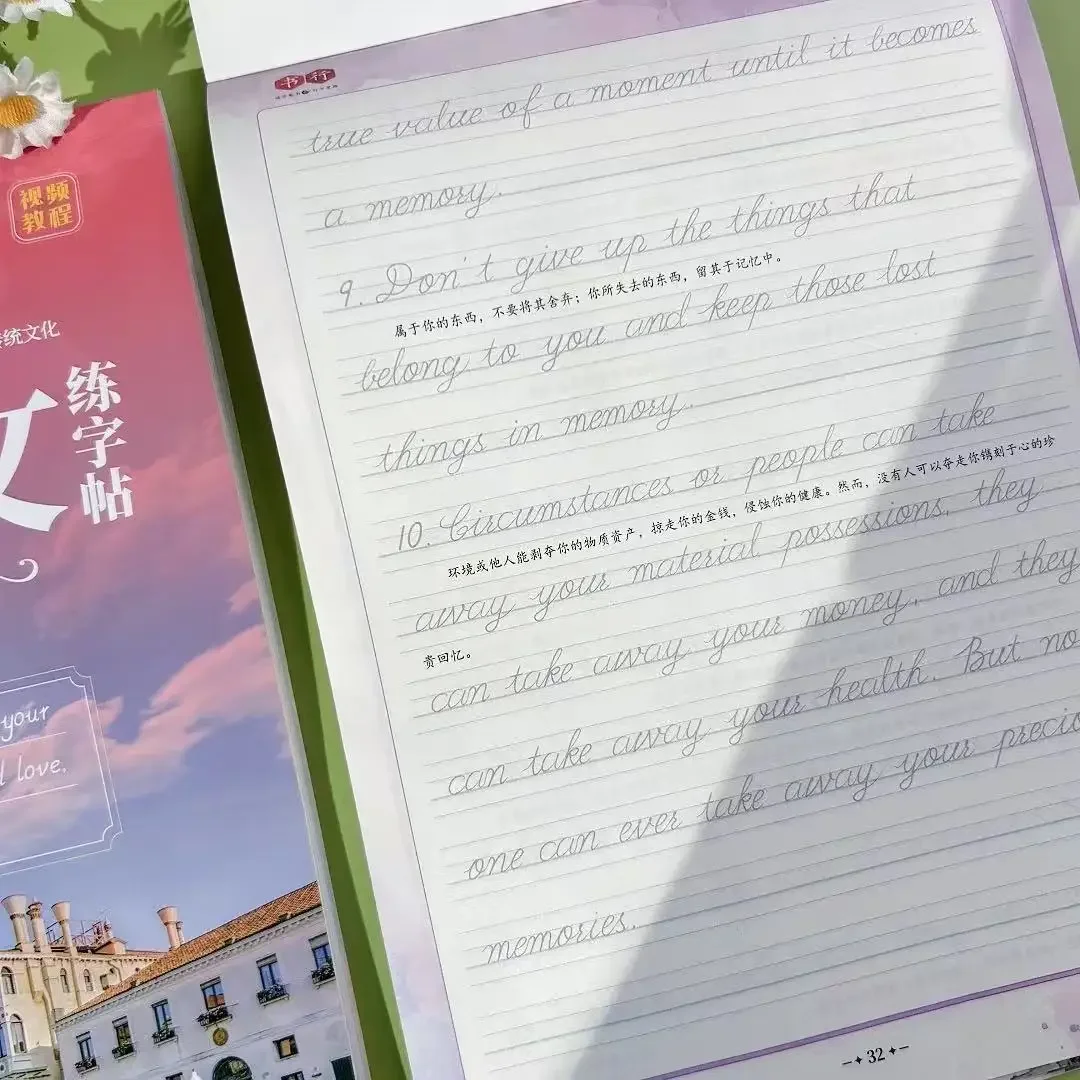 视频
教程
统文化
练字帖
your
love.
书行
true value of a moment until it becomes
a memory.
9. Don't give up the things that
属于你的东西，不要将其舍弃；你所失去的东西，留其于记忆中。
belong to you and keep those lost
things in memory.
10. Circumstances or people can take
环境或他人能剥夺你的物质资产，掠走你的金钱，侵蚀你的健康。然而，没有人可以夺走你镌刻于心的珍
away your material possessions, they
贵回忆。
can take away your money, and they
can take away your health. But no
one can ever take away your precio
memories.
32